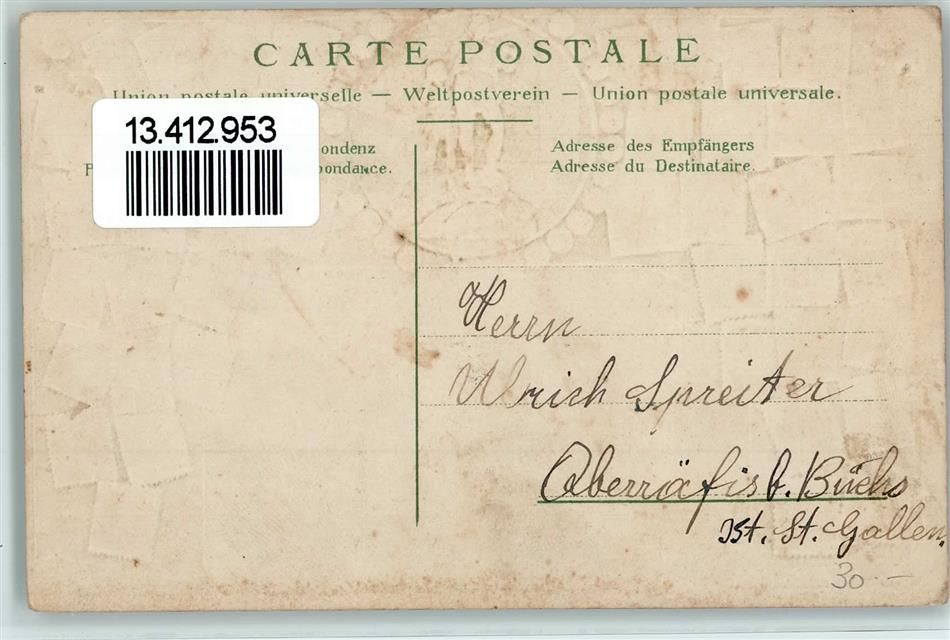 CARTE POSTALE
Union postale universelle — Weltpostverein — Union postale universale.
13.412.953
pondenz
pondance.
Adresse des Empfängers
Adresse du Destinataire.
Herrn
Ulrich Spreiter
Oberräfis b. Buchs
Kt. St. Gallen.
30.—